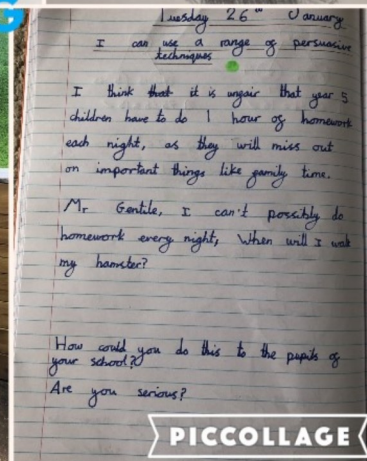 Tuesday 26th January
I can use a range of persuasive
techniques
I think that it is ungair that year 5
children have to do 1 hour of homework
each night, as they will miss out
on important things like family time.
Mr Gentile, I can't possibly do
homework every night, When will I walk
my hamster?
How could you do this to the pupils of
your school?
Are you serious?
PICCOLLAGE